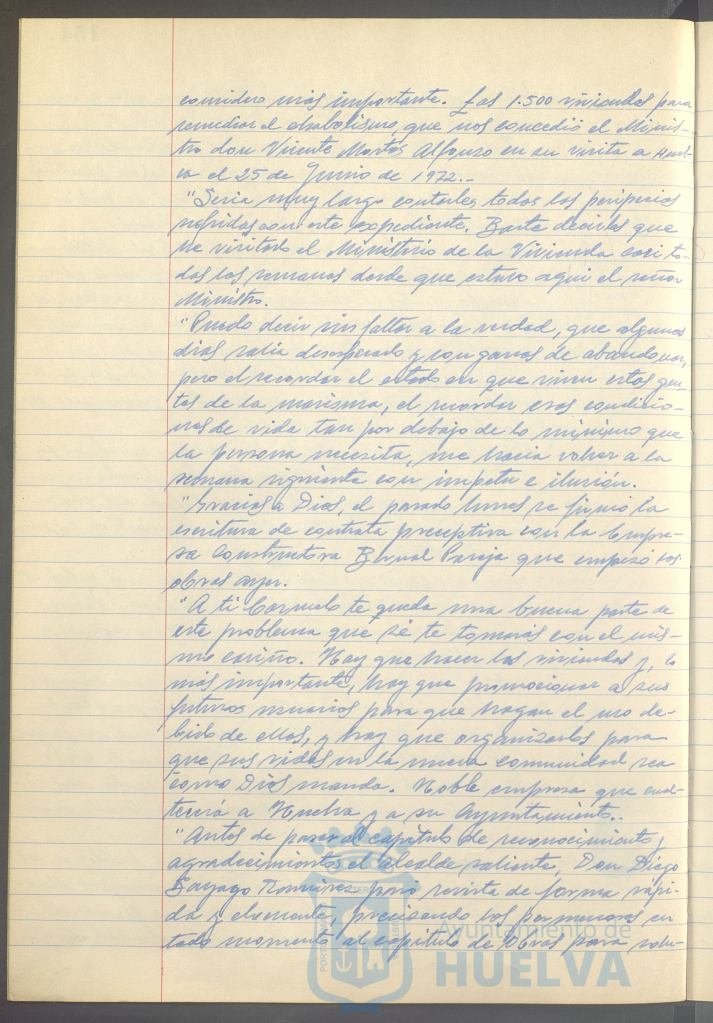 considero más importante. Las 1.500 viviendas para
remediar el chabolismo, que nos concedió el Minis-
tro don Vicente Mortes Alfonso en su visita a Huel-
va el 25 de Junio de 1972.-
"Seria muy largo contarles todas las peripecias
sufridas con este expediente. Baste decirles que
he visitado el Ministerio de la Vivienda casi to-
das las semanas desde que estuvo aqui el señor
Ministro.
"Puedo decir sin faltar a la verdad, que algunos
dias salia desesperado y con ganas de abandonar,
pero el recordar el estado en que viven estas gen-
tes de la marisma, el recordar esas condicio-
nes de vida tan por debajo de lo minimo que
la persona necesita, me hacia volver a la
semana siguiente con impetu e ilusión.
"Gracias a Dios, el pasado lunes se firmó la
escritura de contrata preceptiva con la Empre-
sa Constructora Bernal Pareja que empezó las
obras ayer.
"A ti Carmelo te queda una buena parte de
este problema que sé te tomarás con el mis-
mo cariño. Hay que hacer las viviendas y, lo
más importante, hay que promocionar a sus
futuros usuarios para que hagan el uso de-
bido de ellas, y hay que organizarlos para
que sus vidas en la nueva comunidad sea
como Dios manda. Noble empresa que enal-
tecerá a Huelva y a su Ayuntamiento..
"Antes de pasar al capitulo de reconocimiento y
agradecimientos el alcalde saliente, Don Diego
Sayago Ramirez pasó revista de forma rápi-
da y elocuente, precisando los pormenores en
todo momento al capitulo de Obras para
Ayuntamiento de
HUELVA